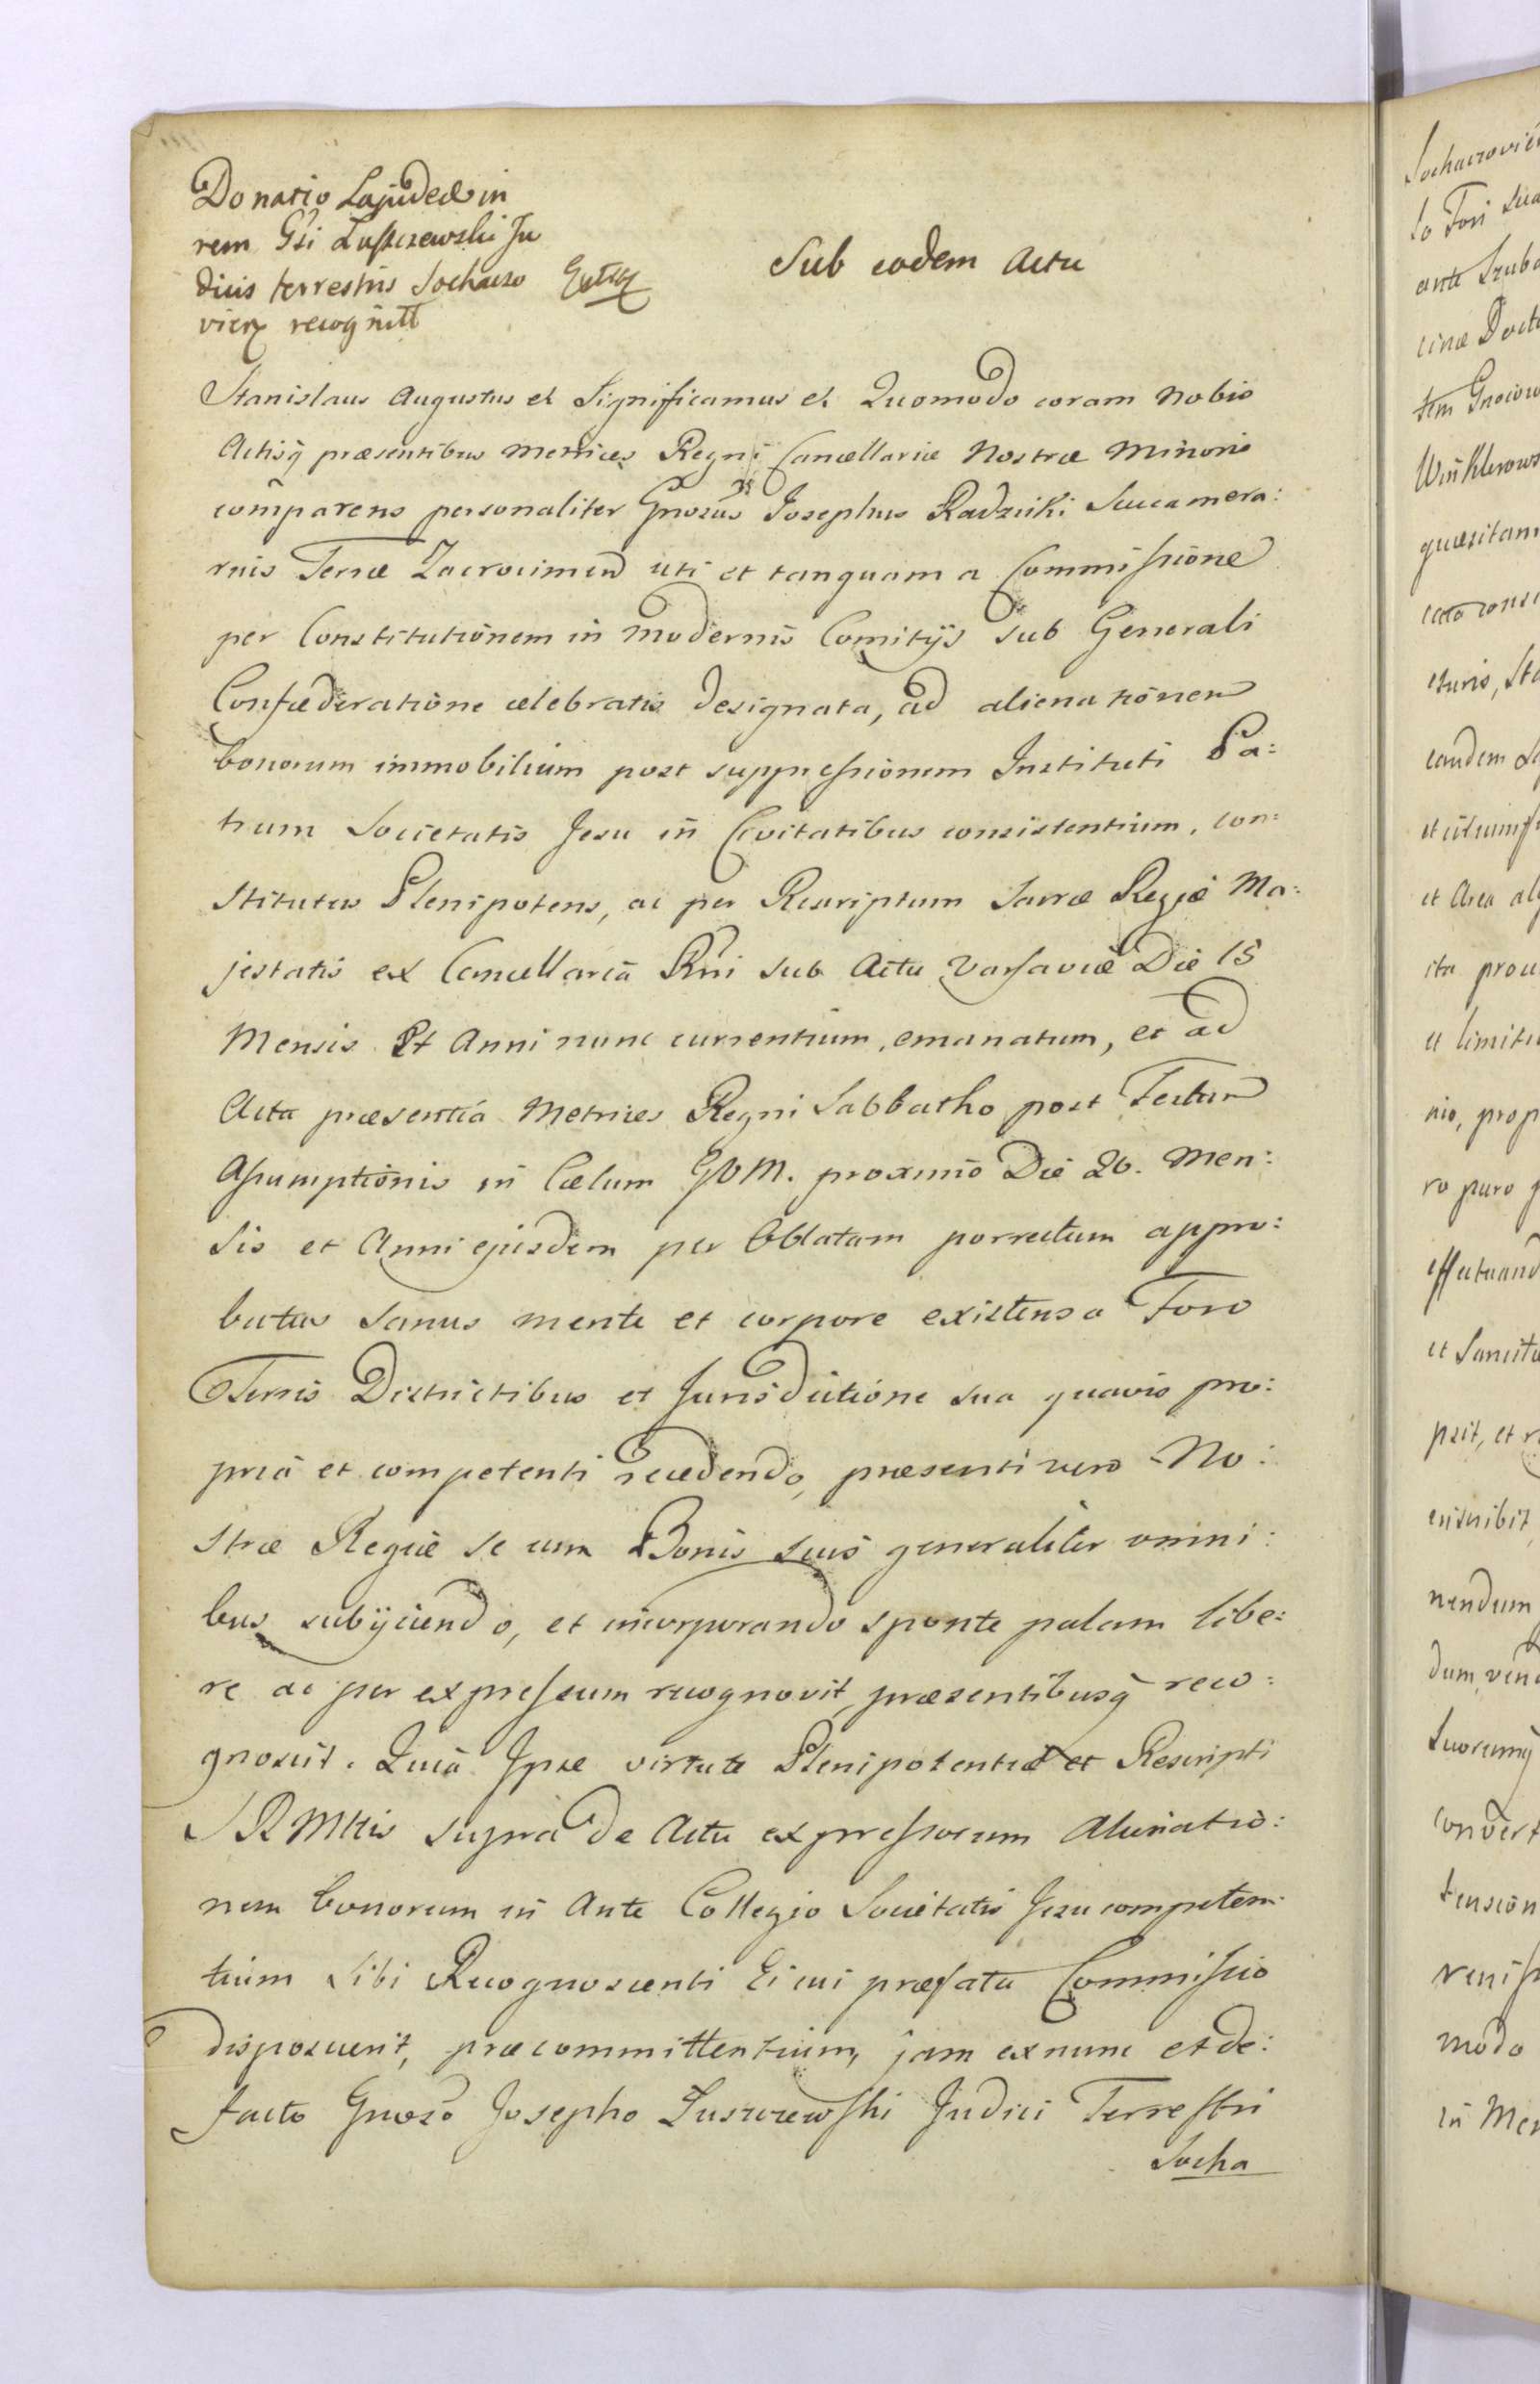 Donatio Lapideæ in
rem Gsi Luszczewski Ju
dicis terrestris Sochaczo
vien recognitt
Sub eodem Actu
Stanislaus Augustus et Significamus et Quomodo coram Nobis
Actisq præsentibus Metrices Regni Cancellariæ Nostræ Minoris
comparens personaliter Gnosus Josephus Radzicki Succamera:
rius Terræ Zacrocimen uti et tanquam a Commissione
per Constitutionem in modernis Comitijs sub Generali
Confæderatione celebratis designata, ad alienationem
bonorum immobilium post suppressionem Instituti Pa:
trum Societatis Jesu in Civitatibus consistentium, con:
stitutus Plenipotens, ac per Rescriptum Sacræ Regiæ Ma:
jestatis ex Cancellaria Rni sub Actu Varsaviæ Die 15
Mensis Et Anni nunc currentium, emanatum, et ad
Acta præsentia Metrices Regni Sabbatho post Festum
Assumptionis in Cælum BVM. proximo Die 20. Men:
sis et Anni ejusdem per Oblatam porrectum appro:
batus sanus mente et corpore existens a Foro
Terris Districtibus et Jurisdictione sua quavis pro:
pria et competenti recedendo, præsenti vero No:
stræ Regiæ se cum Bonis suis generaliter omni:
bus subijciendo, et incorporando sponte palam libe:
re ac per expressum recognovit, præsentibusq reco:
gnoscit. Quia Ipse virtute Plenipotentiæ et Rescripti
SRMttis supra de Actu expressorum Alienatio:
nem bonorum in Ante Collegio Societatis Jesu competen
tium sibi Recognoscenti Ei cui præfata Commissio
disposuerit, præcommittentium, jam exnunc et de:
facto Gnoso Josepho Luszczewski Judici Terrestri
Socha